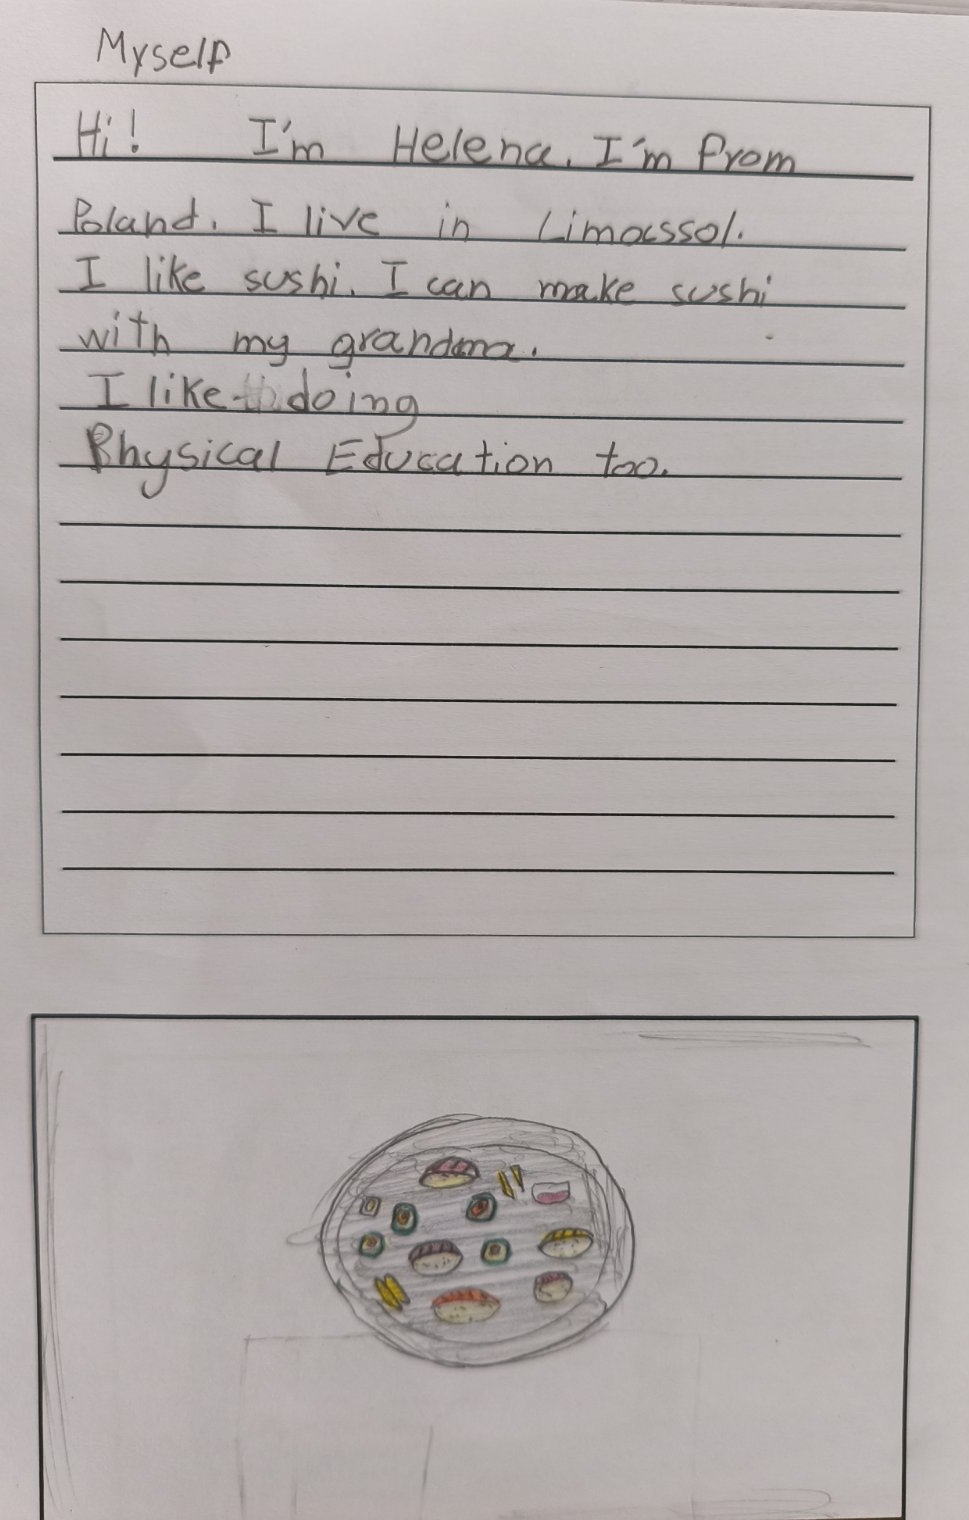 Myself
Hi! I'm Helena. I'm from
Poland. I live in Limassol.
I like sushi. I can make sushi
with my grandma.
I like doing
Physical Education too.